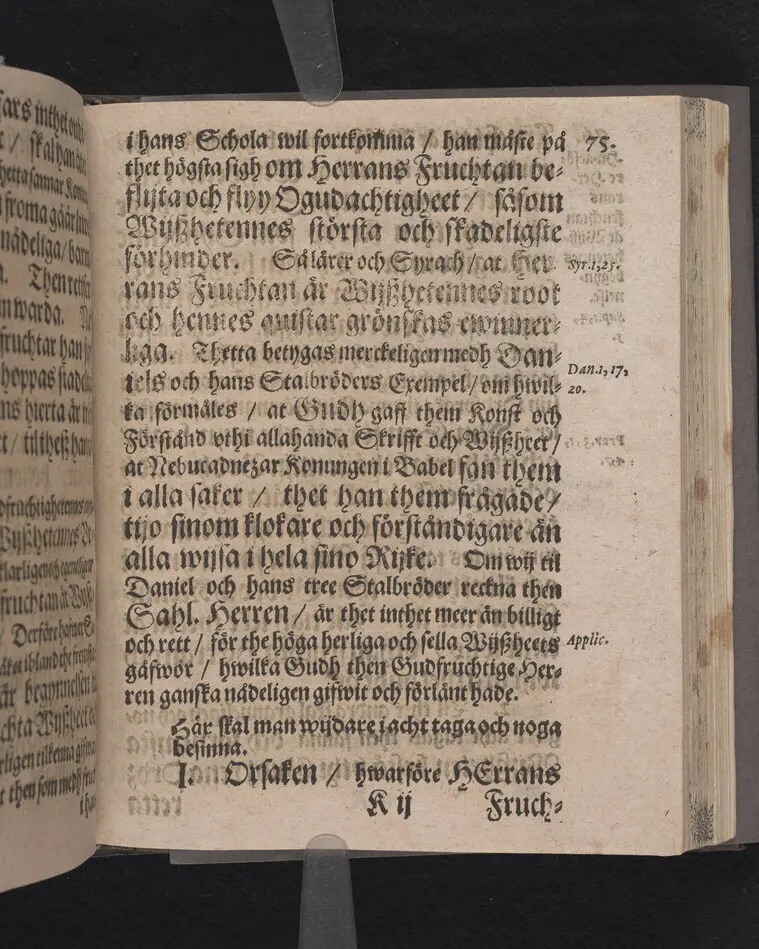 i hans Schola wil fortkomma / han måste på
75.
thet högsta sigh om Herrans Fruchtan be-
flijta och flyy Ogudachtigheet / såsom
Wijßhetennes största och skadeligste
förhinder. Så lärer och Syrach / at Her-
Syr. 1, 25.
rans Fruchtan är Wijßhetennes root
och hennes quistar grönskas ewinner-
liga. Thetta betygas merckeligen medh Dan-
iels och hans Stalbröders Exempel / om hwil-
Dan. 1, 17,
20.
ka förmäles / at Gudh gaff them Konst och
Förstånd vthi allahanda Skrifft och Wijßheet /
at Nebucadnezar Konungen i Babel fan them
i alla saker / thet han them frågade /
tijo sinom klokare och förståndigare än
alla wijsa i hela sino Rijke. Om wij til
Daniel och hans tree Stalbröder reckna then
Sahl. Herren / är thet inthet meer än billigt
och rett / för the höga herliga och sella Wijßheets
Applic.
gåfwor / hwilka Gudh then Gudfruchtige Her-
ren ganska nådeligen gifwit och förlänt hade.
Här skal man wijdare i acht taga och noga
besinna.
I. Orsaken / hwarföre HErrans
K ij
Fruch-